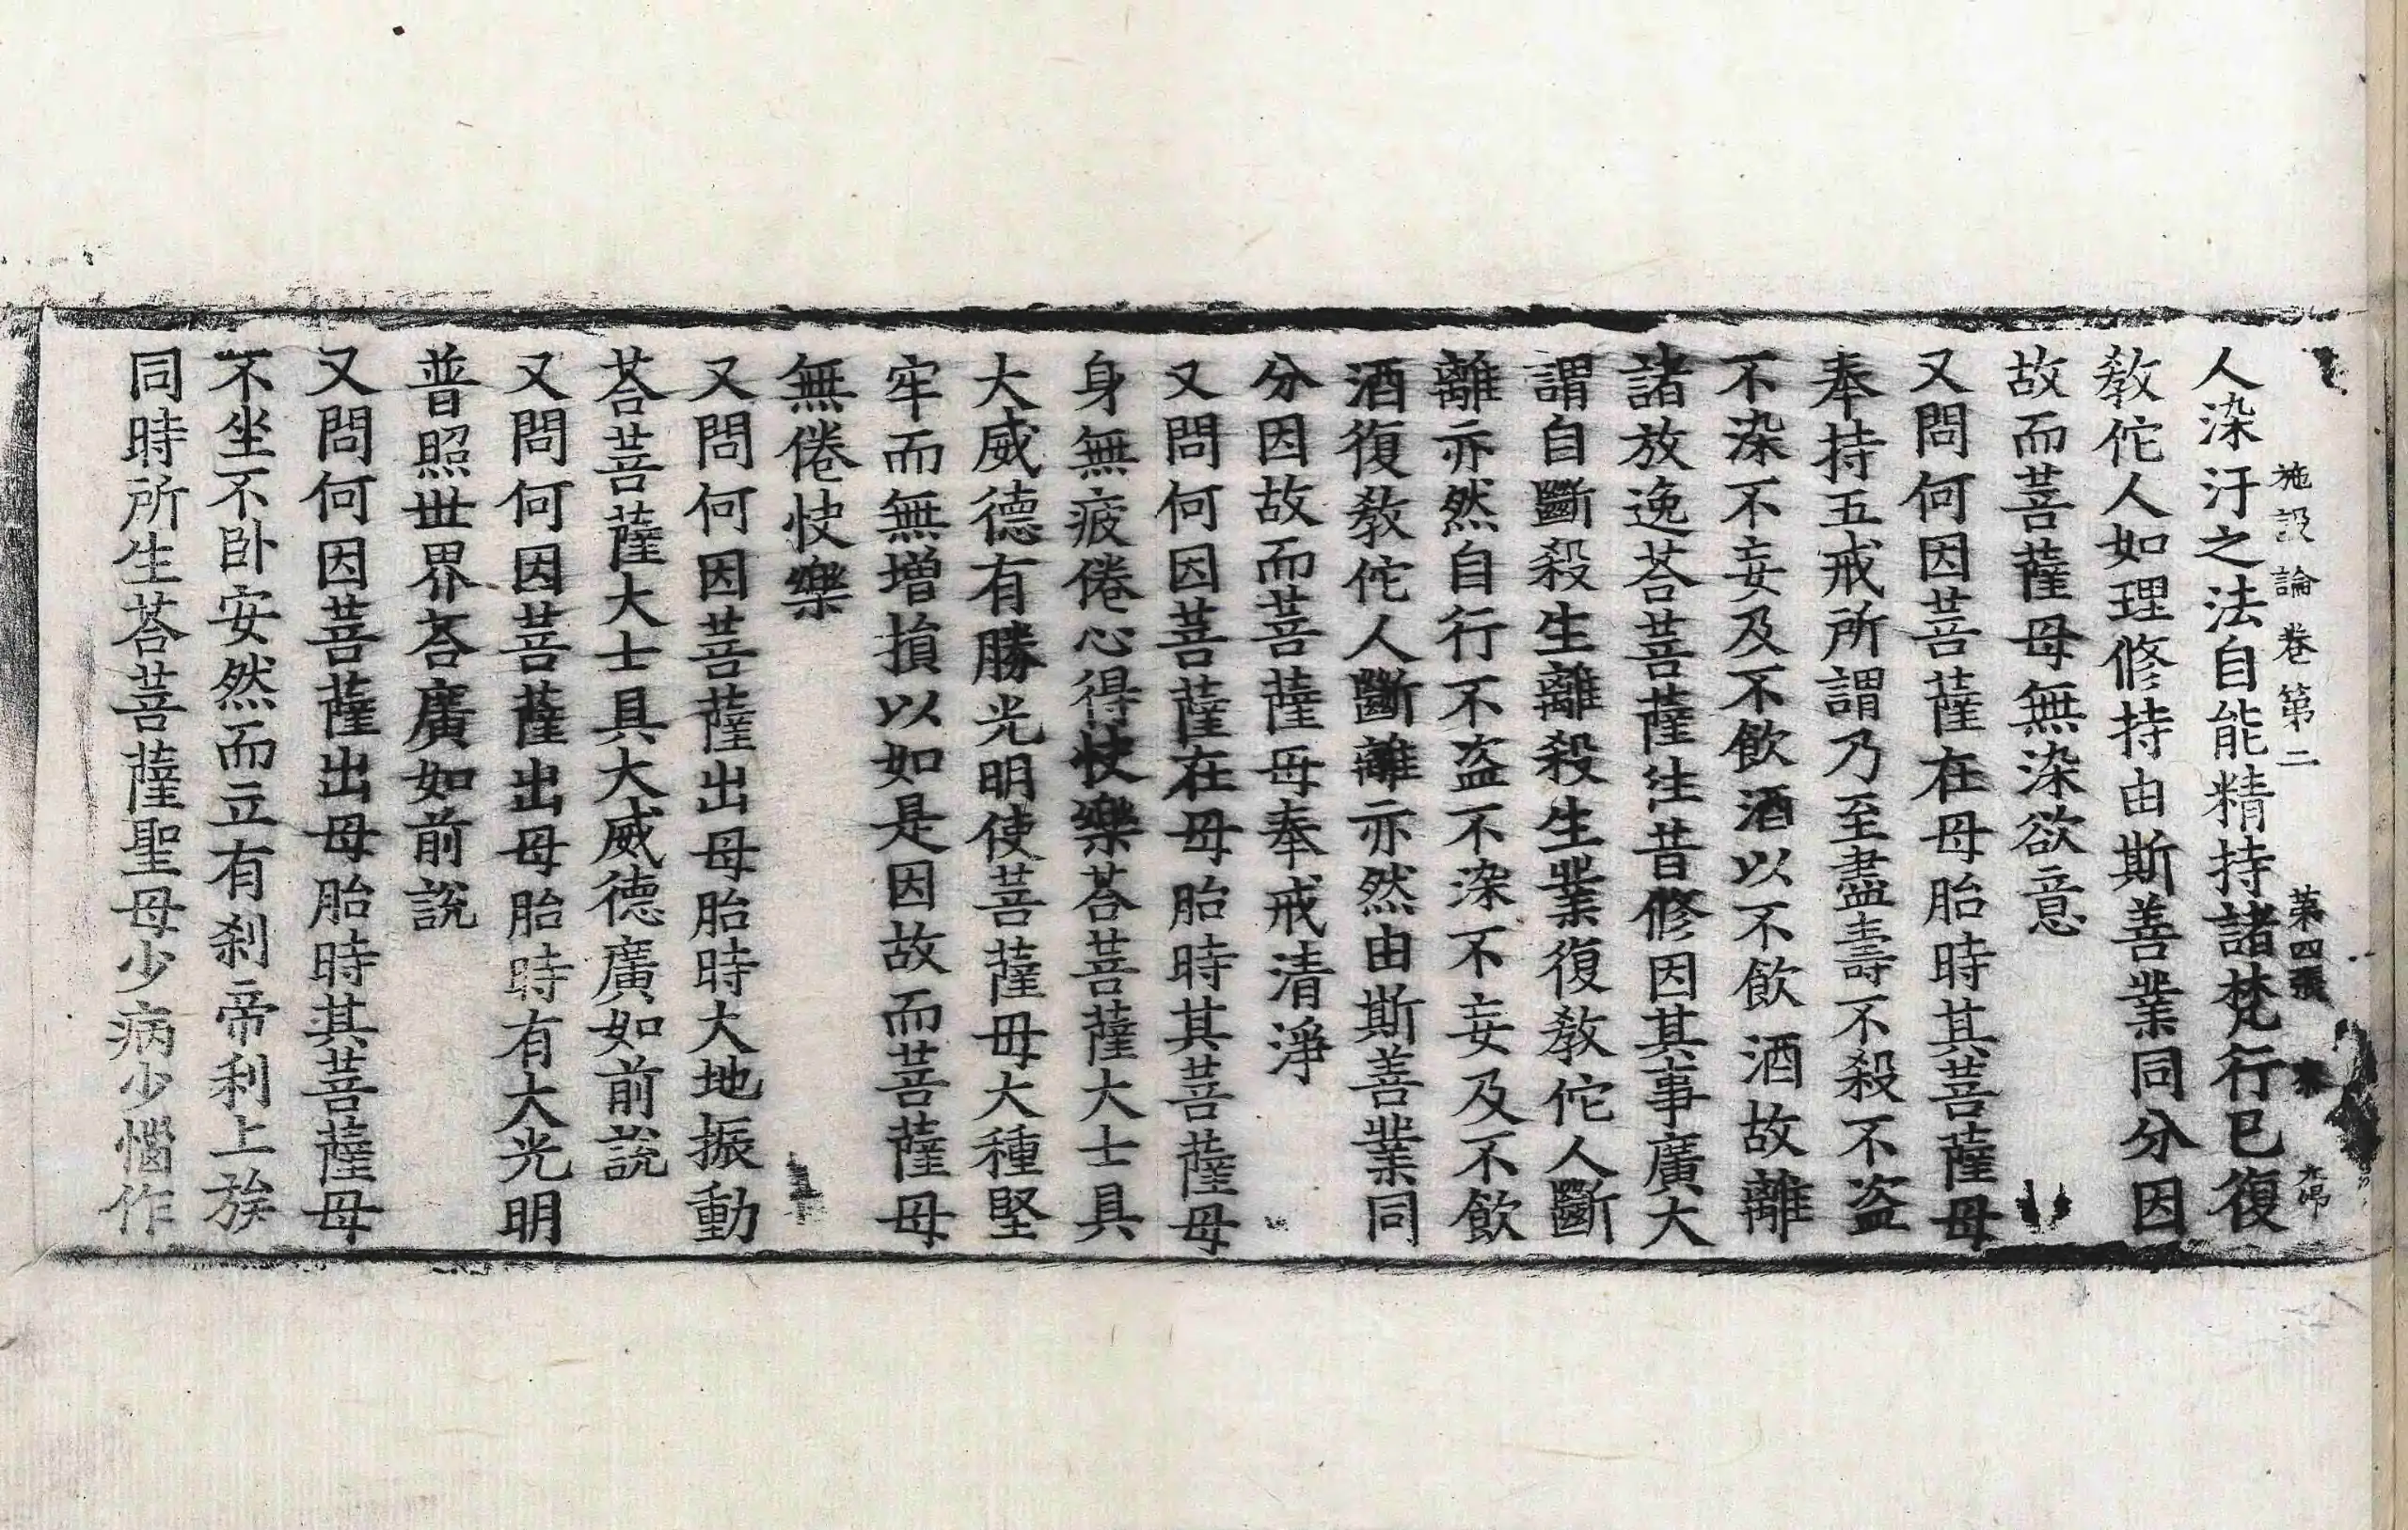 施設論卷第二 第四張
人染汙之法自能精持諸梵行已復
教佗人如理修持由斯善業同分因
故而菩薩母無染欲意
又問何因菩薩在母胎時其菩薩母
奉持五戒所謂乃至盡壽不殺不盜
不染不妄及不飲酒以不飲酒故離
諸放逸荅菩薩往昔修因其事廣大
謂自斷殺生離殺生業復教佗人斷
離亦然自行不盜不染不妄及不飲
酒復教佗人斷離亦然由斯善業同
分因故而菩薩母奉戒清淨
又問何因菩薩在母胎時其菩薩母
身無疲倦心得快樂荅菩薩大士具
大威德有勝光明使菩薩母大種堅
牢而無增損以如是因故而菩薩母
無倦快樂
又問何因菩薩出母胎時大地振動
荅菩薩大士具大威德廣如前說
又問何因菩薩出母胎時有大光明
普照世界荅廣如前說
又問何因菩薩出母胎時其菩薩母
不坐不卧安然而立有剎帝利上族
同時所生荅菩薩聖母少病少惱作